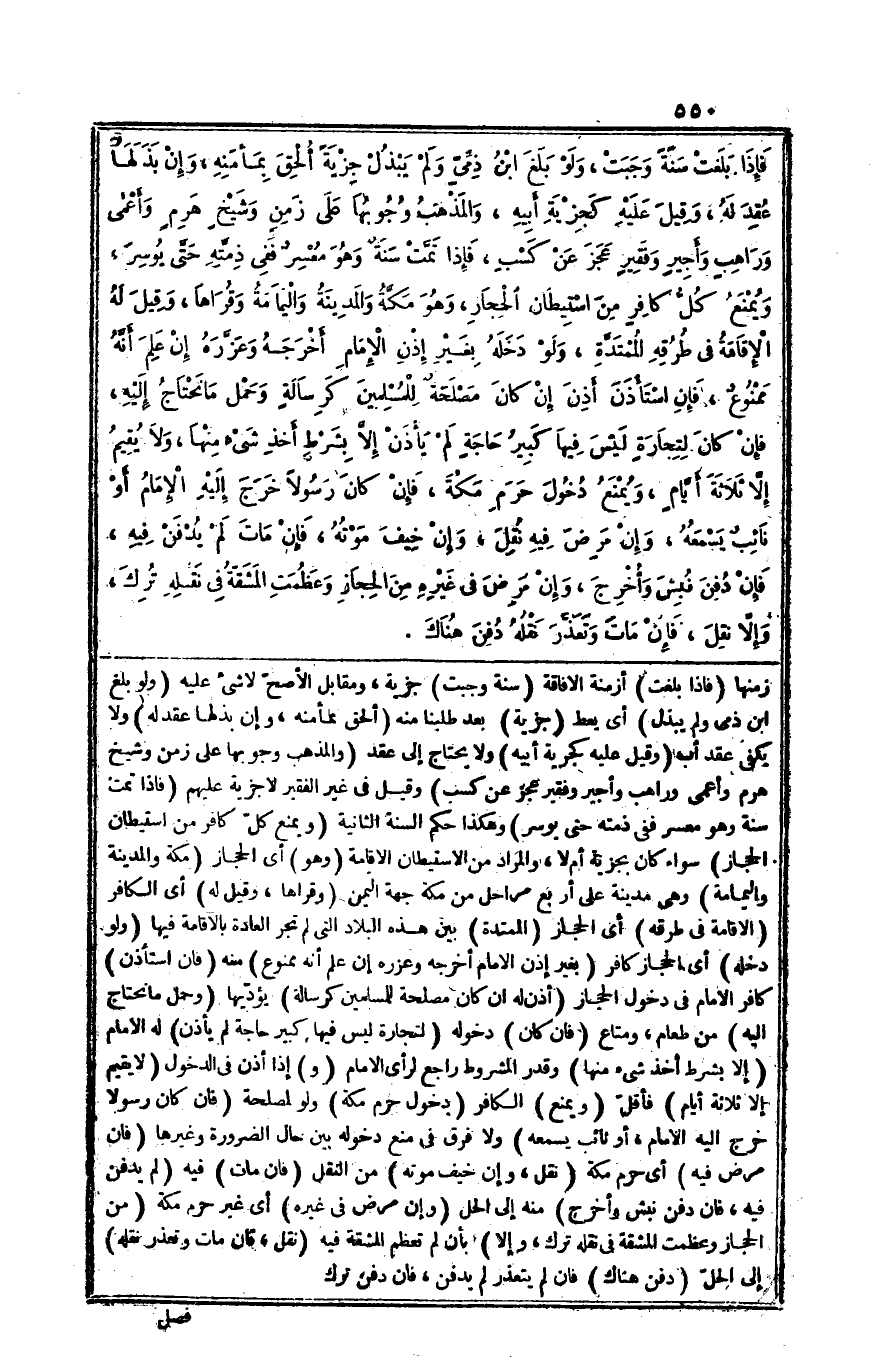 ٥٥٠
فَإِذَا بَلَغَتْ سَنَةً وَجَبَتْ ، وَلَوْ بَلَغَ ابْنُ ذِمِّيٍّ وَلَمْ يَبْذُلْ جِزْيَةً أُلْحِقَ بِمَأْمَنِهِ ، وَإِنْ بَذَلَهَا
عُقِدَ لَهُ ، وَقِيلَ عَلَيْهِ كَجِزْيَةِ أَبِيهِ ، وَالْمَذْهَبُ وُجُوبُهَا عَلَى زَمِنٍ وَشَيْخٍ هَرِمٍ وَأَعْمَى
وَرَاهِبٍ وَأَجِيرٍ وَفَقِيرٍ عَجَزَ عَنْ كَسْبٍ ، فَإِذَا تَمَّتْ سَنَةٌ وَهُوَ مُعْسِرٌ فَفِي ذِمَّتِهِ حَتَّى يُوسِرَ ،
وَيُمْنَعُ كُلُّ كَافِرٍ مِنَ اسْتِيطَانِ الْحِجَازِ ، وَهُوَ مَكَّةُ وَالْمَدِينَةُ وَالْيَمَامَةُ وَقُرَاهَا ، وَقِيلَ لَهُ
الْإِقَامَةُ فِى طُرُقِهِ الْمُمْتَدَّةِ ، وَلَوْ دَخَلَهُ بِغَيْرِ إِذْنِ الْإِمَامِ أَخْرَجَهُ وَعَزَّرَهُ إِنْ عَلِمَ أَنَّهُ
مَمْنُوعٌ ، فَإِنِ اسْتَأْذَنَ أَذِنَ إِنْ كَانَ مَصْلَحَةً لِلْمُسْلِمِينَ كَرِسَالَةٍ وَحَمْلِ مَا نَحْتَاجُ إِلَيْهِ ،
فَإِنْ كَانَ لِتِجَارَةٍ لَيْسَ فِيهَا كَبِيرُ حَاجَةٍ لَمْ يَأْذَنْ إِلَّا بِشَرْطِ أَخْذِ شَىْءٍ مِنْهَا ، وَلَا يُقِيمُ
إِلَّا ثَلَاثَةَ أَيَّامٍ ، وَيُمْنَعُ دُخُولَ حَرَمِ مَكَّةَ ، فَإِنْ كَانَ رَسُولًا خَرَجَ إِلَيْهِ الْإِمَامُ أَوْ
نَائِبٌ يَسْمَعُهُ ، وَإِنْ مَرِضَ فِيهِ نُقِلَ ، وَإِنْ خِيفَ مَوْتُهُ ، فَإِنْ مَاتَ لَمْ يُدْفَنْ فِيهِ ،
فَإِنْ دُفِنَ نُبِشَ وَأُخْرِجَ ، وَإِنْ مَرِضَ فِى غَيْرِهِ مِنَ الْحِجَازِ وَعَظُمَتِ الْمَشَقَّةُ فِى نَقْلِهِ تُرِكَ ،
وَإِلَّا نُقِلَ ، فَإِنْ مَاتَ وَتَعَذَّرَ نَقْلُهُ دُفِنَ هُنَاكَ .
زمنها (فاذا بلغت) أزمنة الافاقة (سنة وجبت) جزية ، ومقابل الأصح لاشىء عليه (ولو بلغ
ابن ذمى ولم يبذل) أى يعط (جزية) بعد طلبنا منه (ألحق بمأمنه ، وإن بذلها عقد له) ولا
يكفى عقد أب (وقيل عليه كجزية أبيه) ولا يحتاج إلى عقد (والمذهب وجوبها على زمن وشيخ
هرم وأعمى وراهب وأجير وفقير عجز عن كسب) وقيل فى غير الفقير لاجزية عليهم (فاذا تمت
سنة وهو معسر ففى ذمته حتى يوسر) وهكذا حكم السنة الثانية (ويمنع كل كافر من استيطان
الحجاز) سواء كان بجزية أم لا ، والمراد من الاستيطان الاقامة (وهو) أى الحجاز (مكة والمدينة
واليمامة) وهى مدينة على أربع مراحل من مكة جهة اليمن (وقراها ، وقيل له) أى الكافر
(الاقامة فى طرقه) أى الحجاز (الممتدة) بين هذه البلاد التى لم تجر العادة بالاقامة فيها (ولو
دخله) أى الحجاز كافر (بغير إذن الامام أخرجه وعزره إن علم أنه ممنوع) منه (فان استأذن)
كافر الامام فى دخول الحجاز (أذن له ان كان مصلحة للمسلمين كرسالة) يؤدّيها (وحمل مانحتاج
اليه) من طعام ، ومتاع (فان كان) دخوله (لتجارة ليس فيها كبير حاجة لم يأذن) له الامام
(إلا بشرط أخذ شىء منها) وقدر المشروط راجع لرأى الامام (و) إذا أذن فى الدخول (لايقيم
إلا ثلاثة أيام) فأقل (ويمنع) الكافر (دخول حرم مكة) ولو لمصلحة (فان كان رسولا
خرج اليه الامام ، أو نائب يسمعه) ولا فرق فى منع دخوله بين حال الضرورة وغيرها (فان
مرض فيه) أى حرم مكة (نقل ، وإن خيف موته) من النقل (فان مات) فيه (لم يدفن
فيه ، فان دفن نبش وأخرج) منه إلى الحل (وإن مرض فى غيره) أى غير حرم مكة (من
الحجاز وعظمت المشقة فى نقله ترك ، وإلا) بأن لم تعظم المشقة فيه (نقل ، فان مات وتعذر نقله)
إلى الحل (دفن هناك) فان لم يتعذر لم يدفن ، فان دفن ترك
فصل